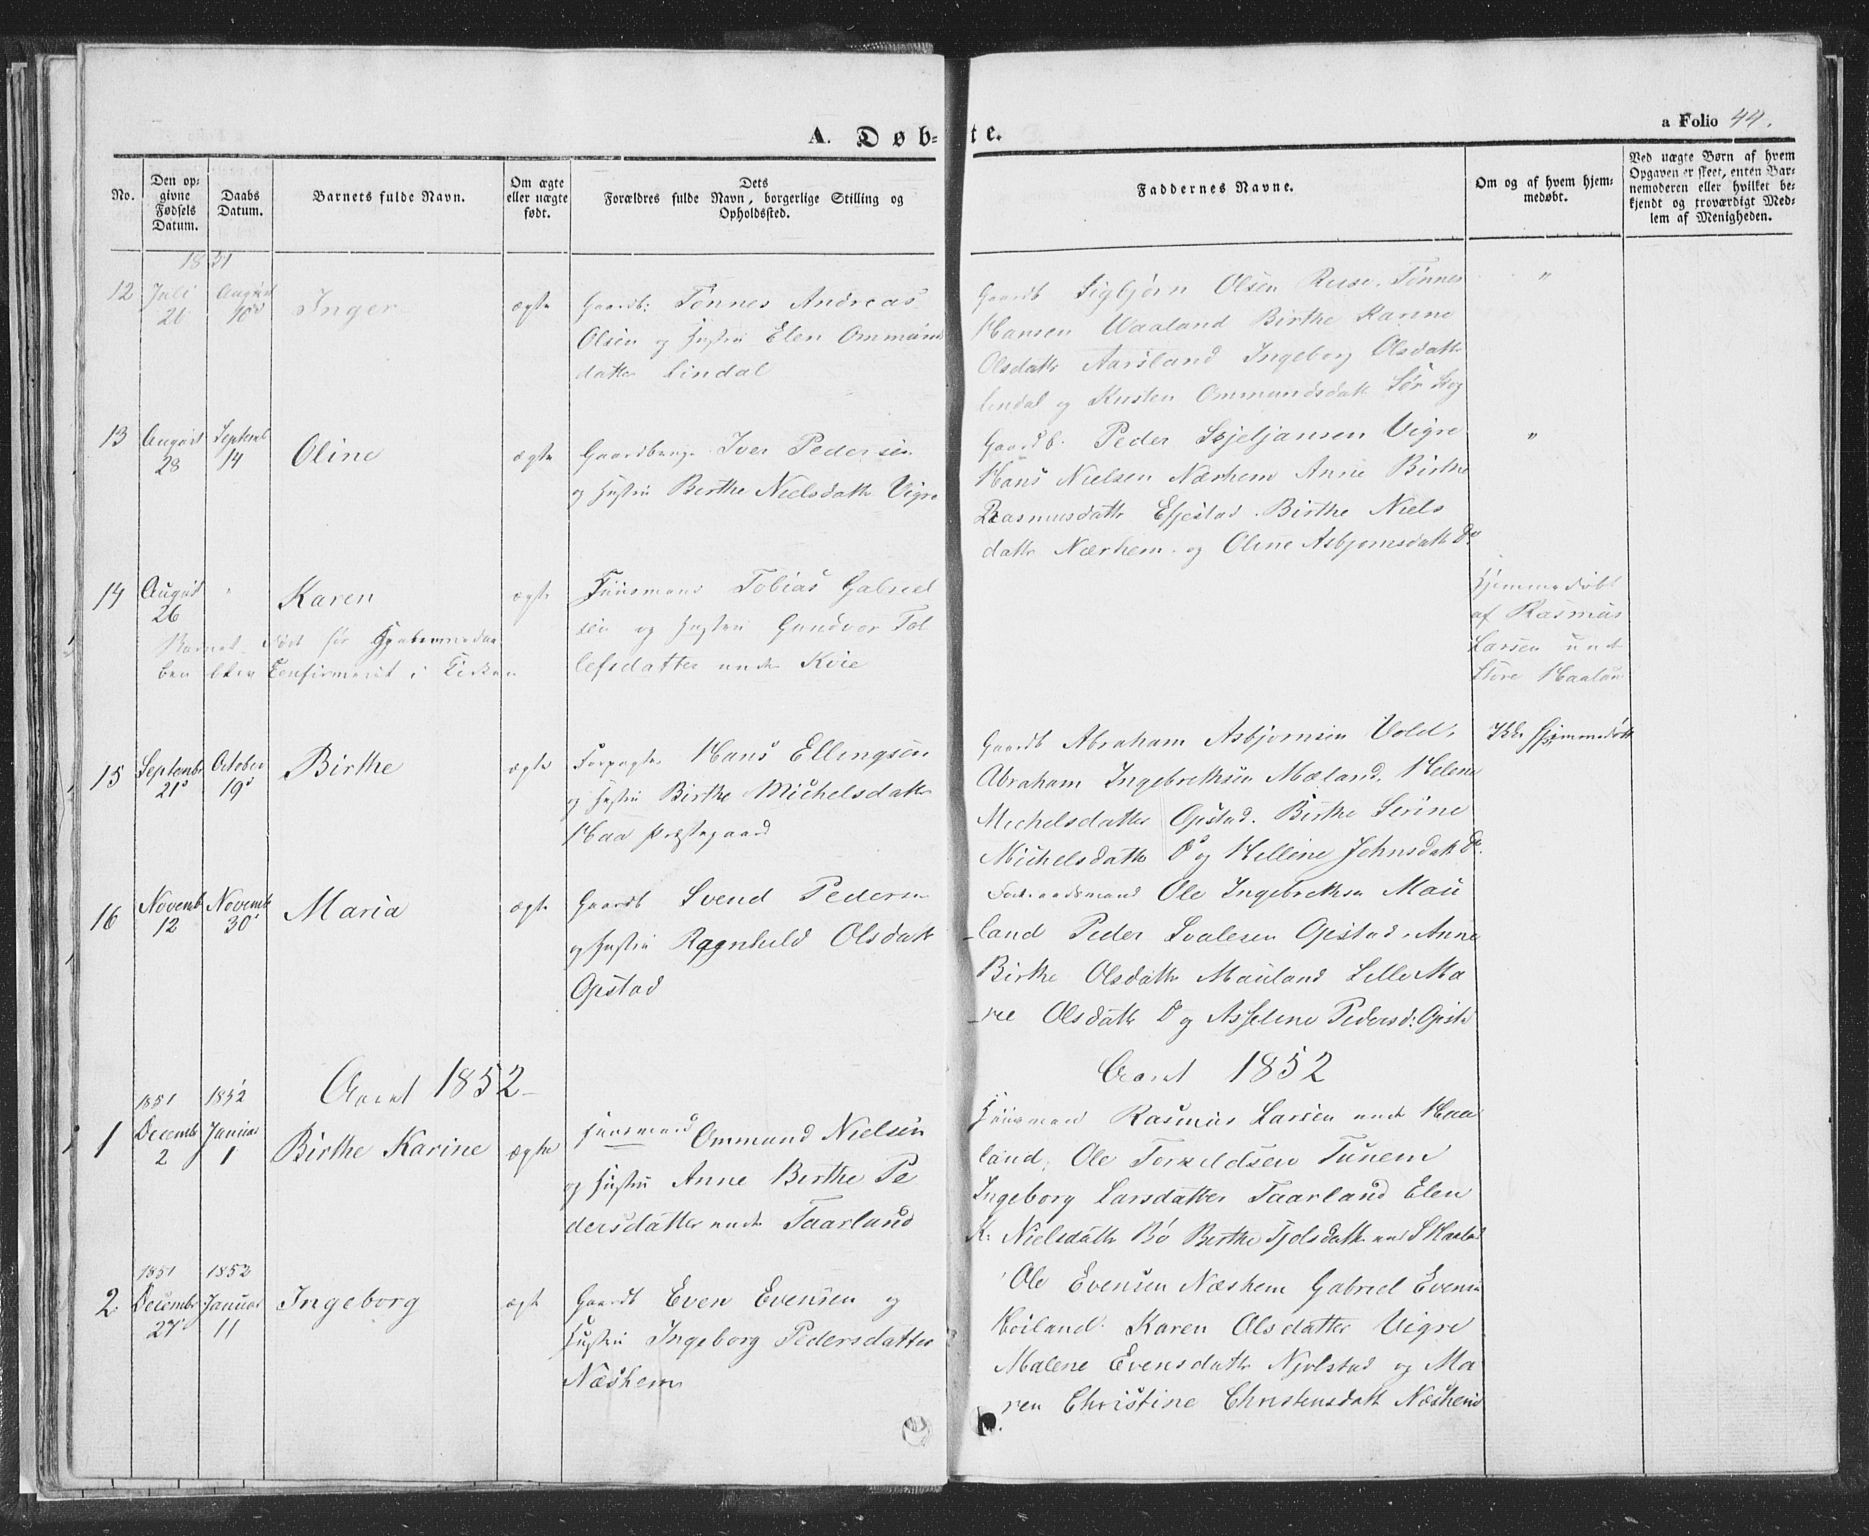 A. Døb-
te.
a Folio 44.
No.
Den op-
givne
Fødsels
Datum.
Daabs
Datum.
Barnets fulde Navn.
Om ægte
eller uægte
født.
Dets
Forældres fulde Navn, borgerlige Stilling og
Opholdssted.
Faddernes Navne.
Om og af hvem hjem-
medøbt.
Ved uægte Børn af hvem
Opgaven er skeet, enten Bar-
nemoderen eller hvilket be-
kjendt og troværdigt Med-
lem af Menigheden.
1851
12
Juli
26
August
10d
Inger
ægte
Gaardb: Tønnes Andreas
Olsen og Hustru Elen Ommund
datter Lindal
Gaardb Sigbjørn Olsen Ruse. Tønnes
Hansen Waaland Birthe Karine
Olsdattr Aarsland Ingeborg Olsdattr
Lindal og Kirsten Ommundsdatt
13
August
28
Septemb
14
Oline
ægte
Iver Pedersen
og Hustru Birthe Nielsdattr Vigre
Gaardb. Peder Vigre
Hans Nielsen Nærhem Anne Birthe
Rasmusdattr Efjestad. Birthe Niels
dattr Nærhem og Oline Asbjørnsdatt Do
"
"
14
August
26
"
Karen
ægte
Huusmand Tobias Gabriel
sen og Hustru Gundvor Tol
lefsdatter under Kvie
Hjemmedøbt
af Rasmus
Larsen und
Store Haalan
Barnet død før
ben blev Confirmeret i Kirken
15
Septembr
21d
October
19d
Birthe
ægte
Forpagter Hans Ellingsen
og Hustru Birthe Michelsdattr
Haa Præstegaard
Gaardb Abraham Asbjørnsen Vold.
Abraham Ingebrethsen Mæland. Helene
Michelsdatter Opstad. Birthe Serine
Michelsdattr Do og Helline Johnsdatt Do.
Ikke Hjemmedøbt
16
Novemb
12
Novemb
30d
Maria
ægte
Gaardb Svend Pedersen
og Hustru Ragnhild Olsdatt
Opstad
Formandsmand Ole Ingebrethsen Mau
land Peder Svalesen Opstad. Anne
Birthe Olsdattr Mauland Lille Ma
rie Olsdattr Do og Asseline Pedersd: Opst
Aaret 1852
Aaret 1852
1
1851
Decemb
2
1852
Januar
1
Birthe Karine
ægte
Huusmand Ommund Nielsen
og Hustru Anne Birthe Pe
dersdatter under Taarland
Huusmand Rasmus Larsen und Haa
land. Ole Torkeldsen Tunem
Ingeborg Larsdatter Taarland Elen
K. Nielsdattr Bø Berthe und S Haalan
2
1851
Decembr
27
1852
Januar
11
Ingeborg
ægte
Gaardb Even Evensen og
Hustru Ingeborg Pedersdatter
Næshem
Ole Evensen Næshem Gabriel Evensen
Høiland. Karen Olsdatter Vigre
Malene Evensdattr Njølstad og Ma
ren Christine Christensdatt Næshem